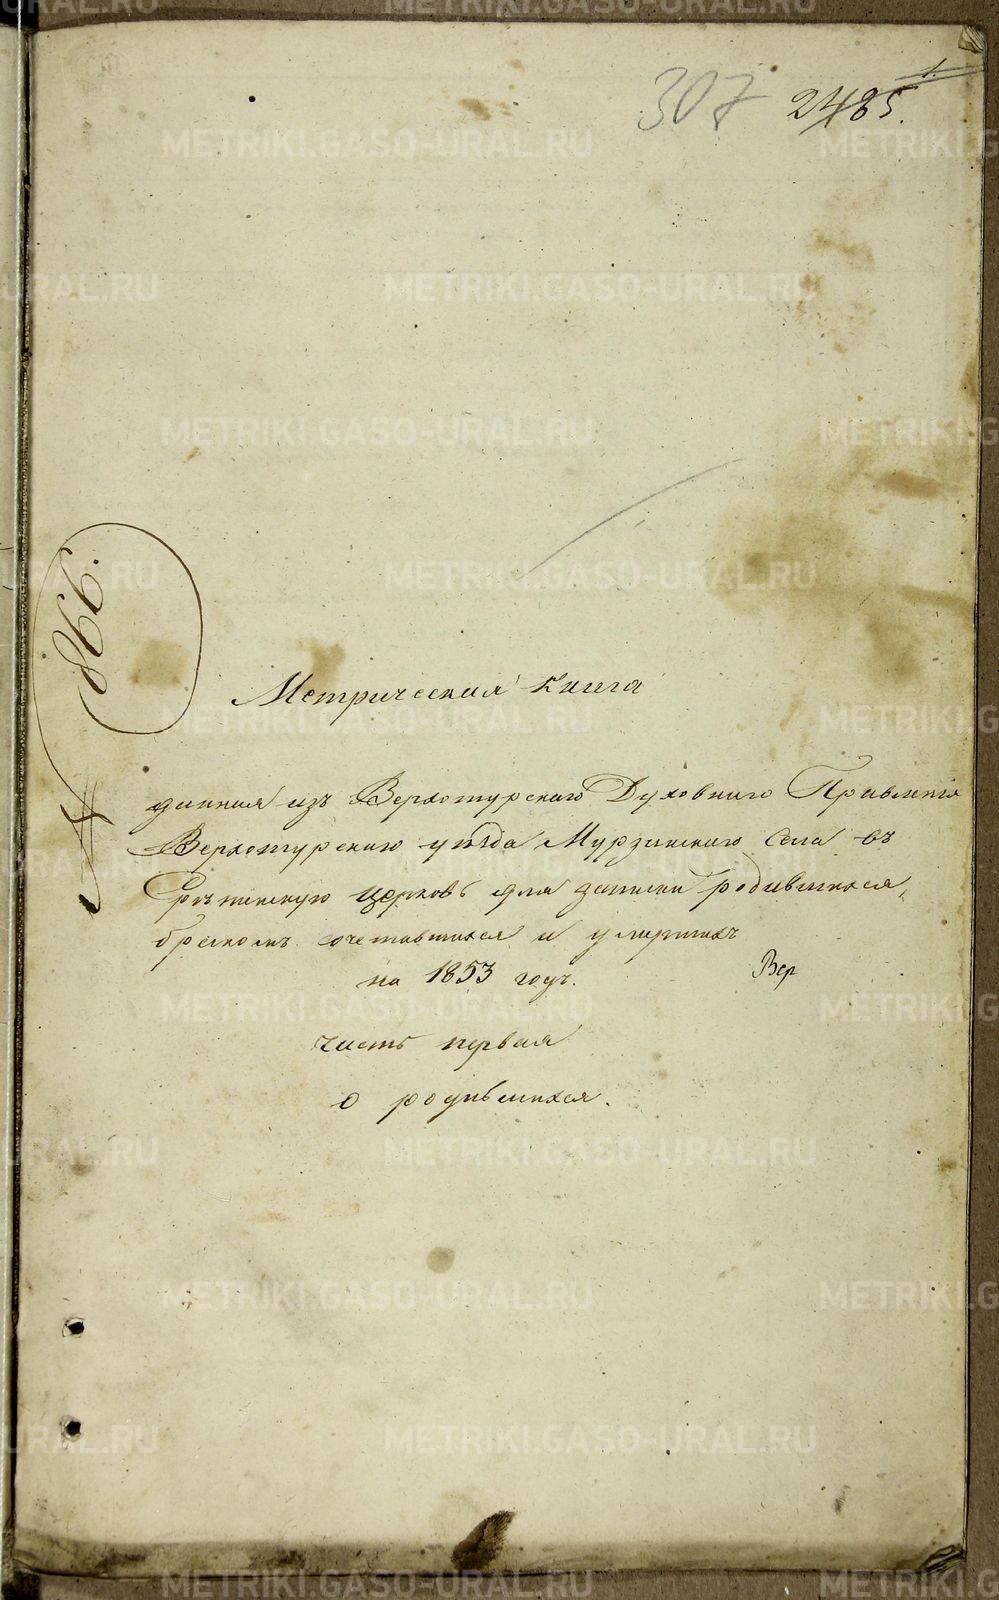 1.
307 2485.
№ 866.
Метрическая книга
данная изъ Верхотурскаго Духовнаго Правленія
Верхотурскаго уѣзда Мурзинскаго Села въ
Срѣтенскую церковь для записки родившихся,
бракомъ сочетавшихся и умершихъ
на 1853 годъ.
Вер
часть первая
о родившихся.
METRIKI.GASO-URAL.RU